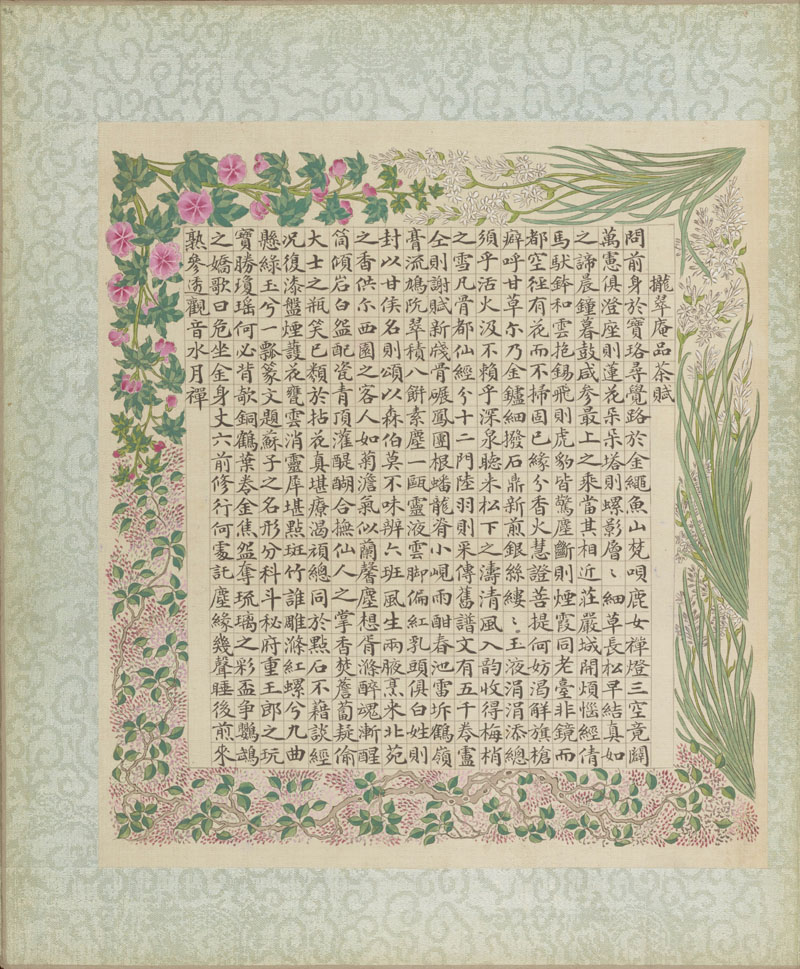 攏翠庵品茶賦
問前身於寶珞尋覺路於金繩魚山梵唄鹿女禪燈三空竟闢
萬憲俱澄座則蓮花朵朵塔則螺影層〻細草長松早結真如
之諦晨鐘暮鼓咸參最上之乘當其相近莊嚴城開煩惱經倩
馬馱鉢和雲抱錫飛則虎豹皆驚塵斷則煙霞同老臺非鏡而
都空徑有花而不掃固已緣分香火慧證菩提何妨渴解旗槍
癖呼甘草尔乃金鑪細撥石鼎新煎銀絲縷〻玉液涓涓添總
須乎活火汲不賴乎深泉聽來松下之濤清風入韵收得梅梢
之雪凡骨都仙經分十二門陸羽則采傳舊譜文有五千卷盧
仝則謝賦新牋骨碾鳳團根蟠龍脊小峴雨酣春池雷坼鶴嶺
膏流鳩阬翠積八餅素塵一甌靈液雲脚偏紅乳頭俱白姓則
封以甘侯名則頌以森伯莫不味辨六班風生兩腋烹來北苑
之香供尔西園之客人如菊澹氣似蘭馨塵想胥滌醉魂漸醒
筒傾岩白盌配瓷青頂灌醍醐合撫仙人之掌香焚薝蔔疑偷
大士之瓶笑已類於拈花真堪療渴頑總同於點石不藉談經
况復漆盤煙護花甕雲消靈犀堪點斑竹誰雕滌紅螺兮九曲
懸綠玉兮一瓢篆文題蘇子之名形分科斗秘府重王郎之玩
寶勝瓊瑤何必背欹銅鶴葉卷金焦盌奪琉璃之彩盃爭鸚鵡
之嬌歌曰危坐金身丈六前修行何處託塵緣幾聲睡後煎來
熟參透觀音水月禪